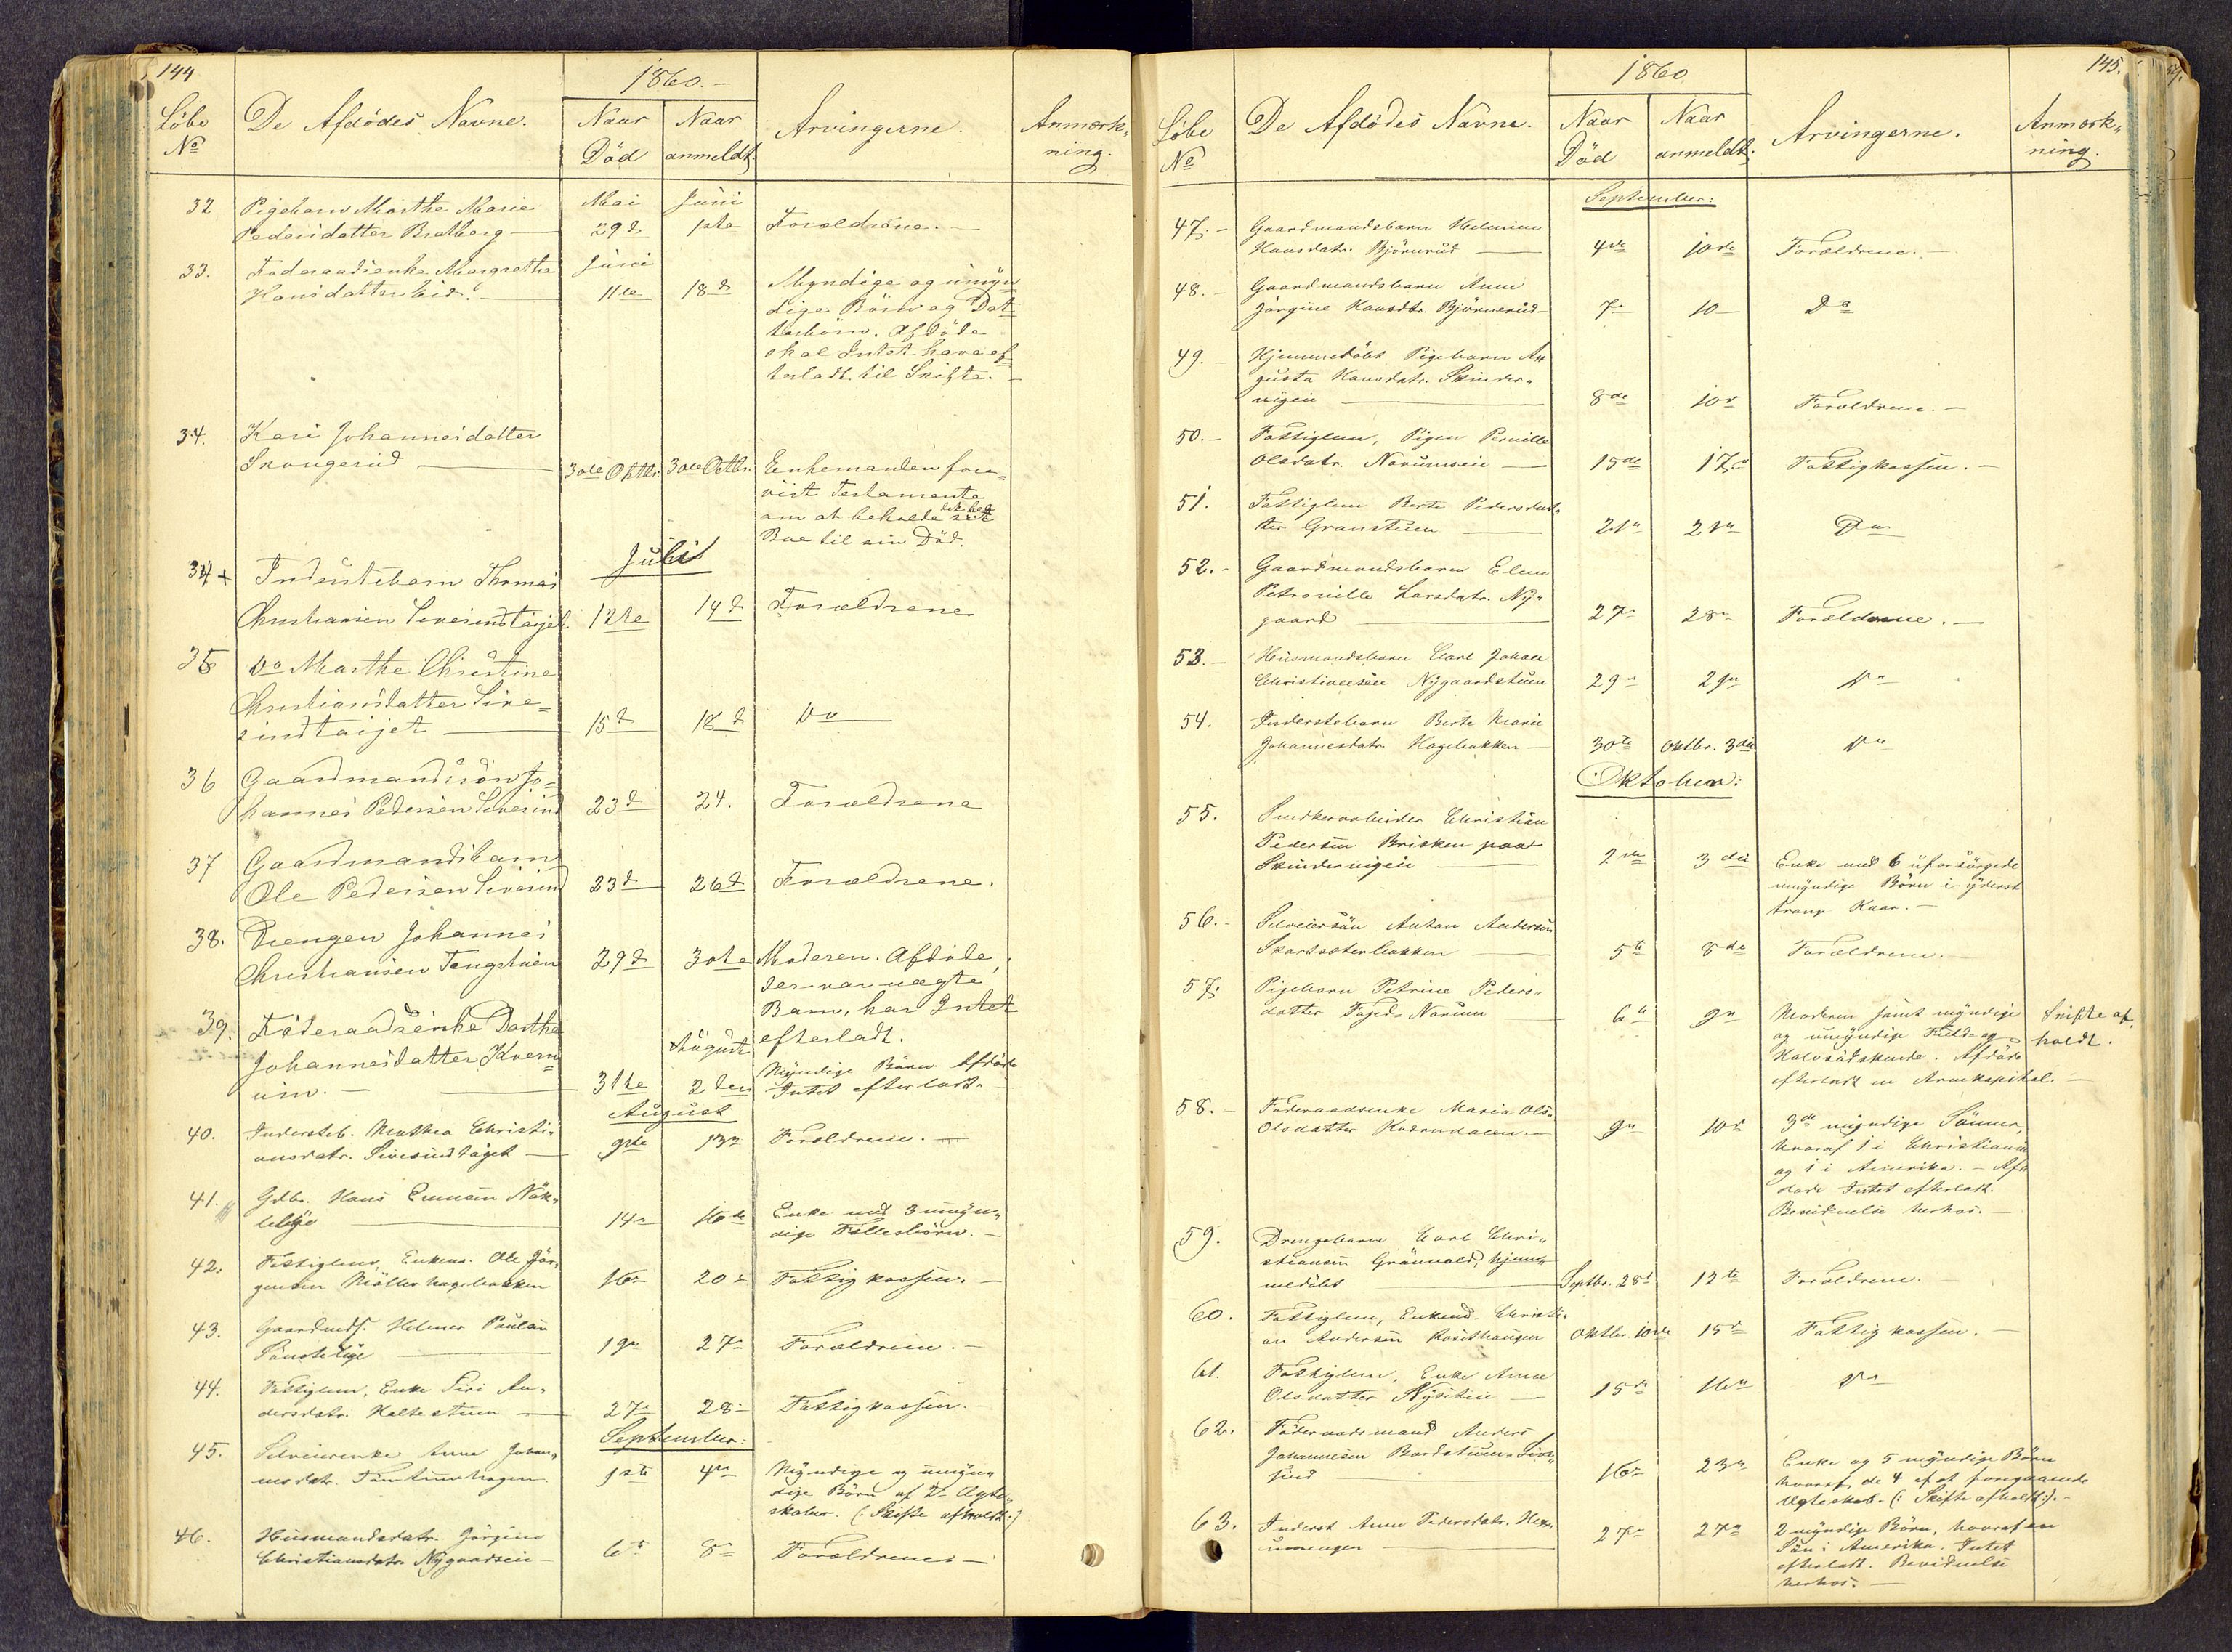 144
1860.-
Löbe No
De Afdödes Navne.
Naar Död
Naar anmeldt
Arvingerne.
Anmærk-
ning.
32 Pigebarn Marthe Marie Mai Juni
Pedersdatter Bratberg 29d 1ste Forældrene.-
33. Föderaadsenke Margrethe Juni
Hansdatter Eid. 11te 18d Myndige og umyn
dige Börn og Dat
terbörn. Afdöde
skal Intet have ef
terladt til Skifte.-
34. Kari Johannesdatter
Skougerud 30te Oktbr. 30te Oktbr. Enkemanden fore-
vist Testamente
om at beholde det hele
Boe til sin Död.
Juli
34+ Inderstebarn Thomas
Christiansen Sivesindtaijet 12te 14d Forældrene
35 Do Marthe Christine
Christiansdatter Sive-
sindtaijet 15d 18d Do
36 Gaardmandssön Jo-
hannes Pedersen Sivesind 23d 24. Forældrene
37 Gaardmandsbarn
Ole Pedersen Sivesind 23d 26d Forældrene.
38. Drengen Johannes
Christiansen Tengstuen 29d 30te Moderen. Afdöde,
der var uægte
Barn, har Intet
efterladt.
39. Föderaadsenke Dorthe August
Johannesdatter Kvern Myndige Börn Afdöde
um.- 31te 2den Intet efterladt.-
August
40. Indersteb. Mathea Christi-
ansdatr. Sivesindtaget 9de 13n Forældrene.-
41. Gdbr. Hans Evensen Nök-
leby 14n 16de Enke med 3 umyn-
dige Fællesbörn.-
42. Fattiglem, Enkem. Ole Jör-
gensen Möllerhagebakken 16n 20n Fattigkassen.-
43. Gaardmdss. Helmer Paulsen
19n 27n Forældrene.-
44. Fattiglem, Enke Siri An-
dersdatr. Haltestuen 27n 28n Fattigkassen.-
September:
45. Selveierenke Anne Johan-
nesdatr. 1ste 4de Myndige og umyn-
dige Börn af 2de Ægte-
skaber. (: Skifte afholdt:)
46. Husmandsdatr. Jörgine
Christiansdatr. Nygaardseie 6te 8n Forældrene.-
145.
1860
Löbe No
De Afdödes Navne.
Naar Död
Naar anmeldt.
Arvingerne.
Anmærk-
ning.
September:
47.- Gaardmandsbarn Helmine
Hansdatr. Björnerud 4de 10de Forældrene.-
48.- Gaardmandsbarn Anne
Jörgine Hansdtr. Björnerud 7n 10 Do
49.- Hjemmedöbt Pigebarn Au
gusta Hansdatr. Skinder-
vigen 8de 10d Forældrene.-
50.- Fattiglem, Pigen Pernille
Olsdatr. Narumseie 15de 17d Fattigkassen.-
51. Fattiglem Berte Pedersdat-
ter Granstuen 21n 21n Do
52.- Gaardmandsbarn Elen
Petronille Larsdatr. Ny-
gaard 27n 28n Forældrene.-
53.- Husmandsbarn Carl Johan
Christiansen Nygaardstuen 29n 29n Do
54. Inderstebarn Berte Marie
Johannesdatr. Hagebakken 30te Oktbr. 3die Do
Oktober:
55. Snedkerarbeider Christian
Pedersen Brisken paa
Skindervigen 2den 3die Enke med 6 uforsörgede
myndige Börn i yderst
trange Kaar.-
56.- Selveiersön Anton Andersen
Skartseterbakken 5te 8de Forældrene.-
57. Pigebarn Petrine Peders-
datter Narum 6te 9n Moderen samt myndige Skifte af-
og umyndige Hel- og holdt.
Halvsödskende. Afdöde
efterladt en Arvekapital.-
58.- Föderaadsenke Maria Ols-
Olsdatter 9n 10d 3de myndige Sönner,
hvoraf 1 i Christiania
og 1 i Amerika.- Af-
döde Intet efterladt.
Bevidnelse herhos.-
59. Drengebarn Carl Chri-
stiansen Grönvold, hjem-
medöbt Septbr. 28d 12te Forældrene.-
60. Fattiglem, Enkemd. Christi-
an Andersen Oktbr. 10de 15d Fattigkassen.-
61. Fattiglem, Enke Anne
Olsdatter Nystuen 15de 16n Do
62. Föderaadsmand Anders
Johannesen Bardstuen Sive
sind 16n 23n Enke og 5 myndige Börn
hvoraf de 4 af et foregaaende
Ægteskab. (: Skifte afholdt:).-
63. Inderst Anne Pedersdatr. 27n 27n 2 myndige Börn, hvoraf en
Sön i Amerika. Intet
efterladt. Bevidnelse
herhos.-